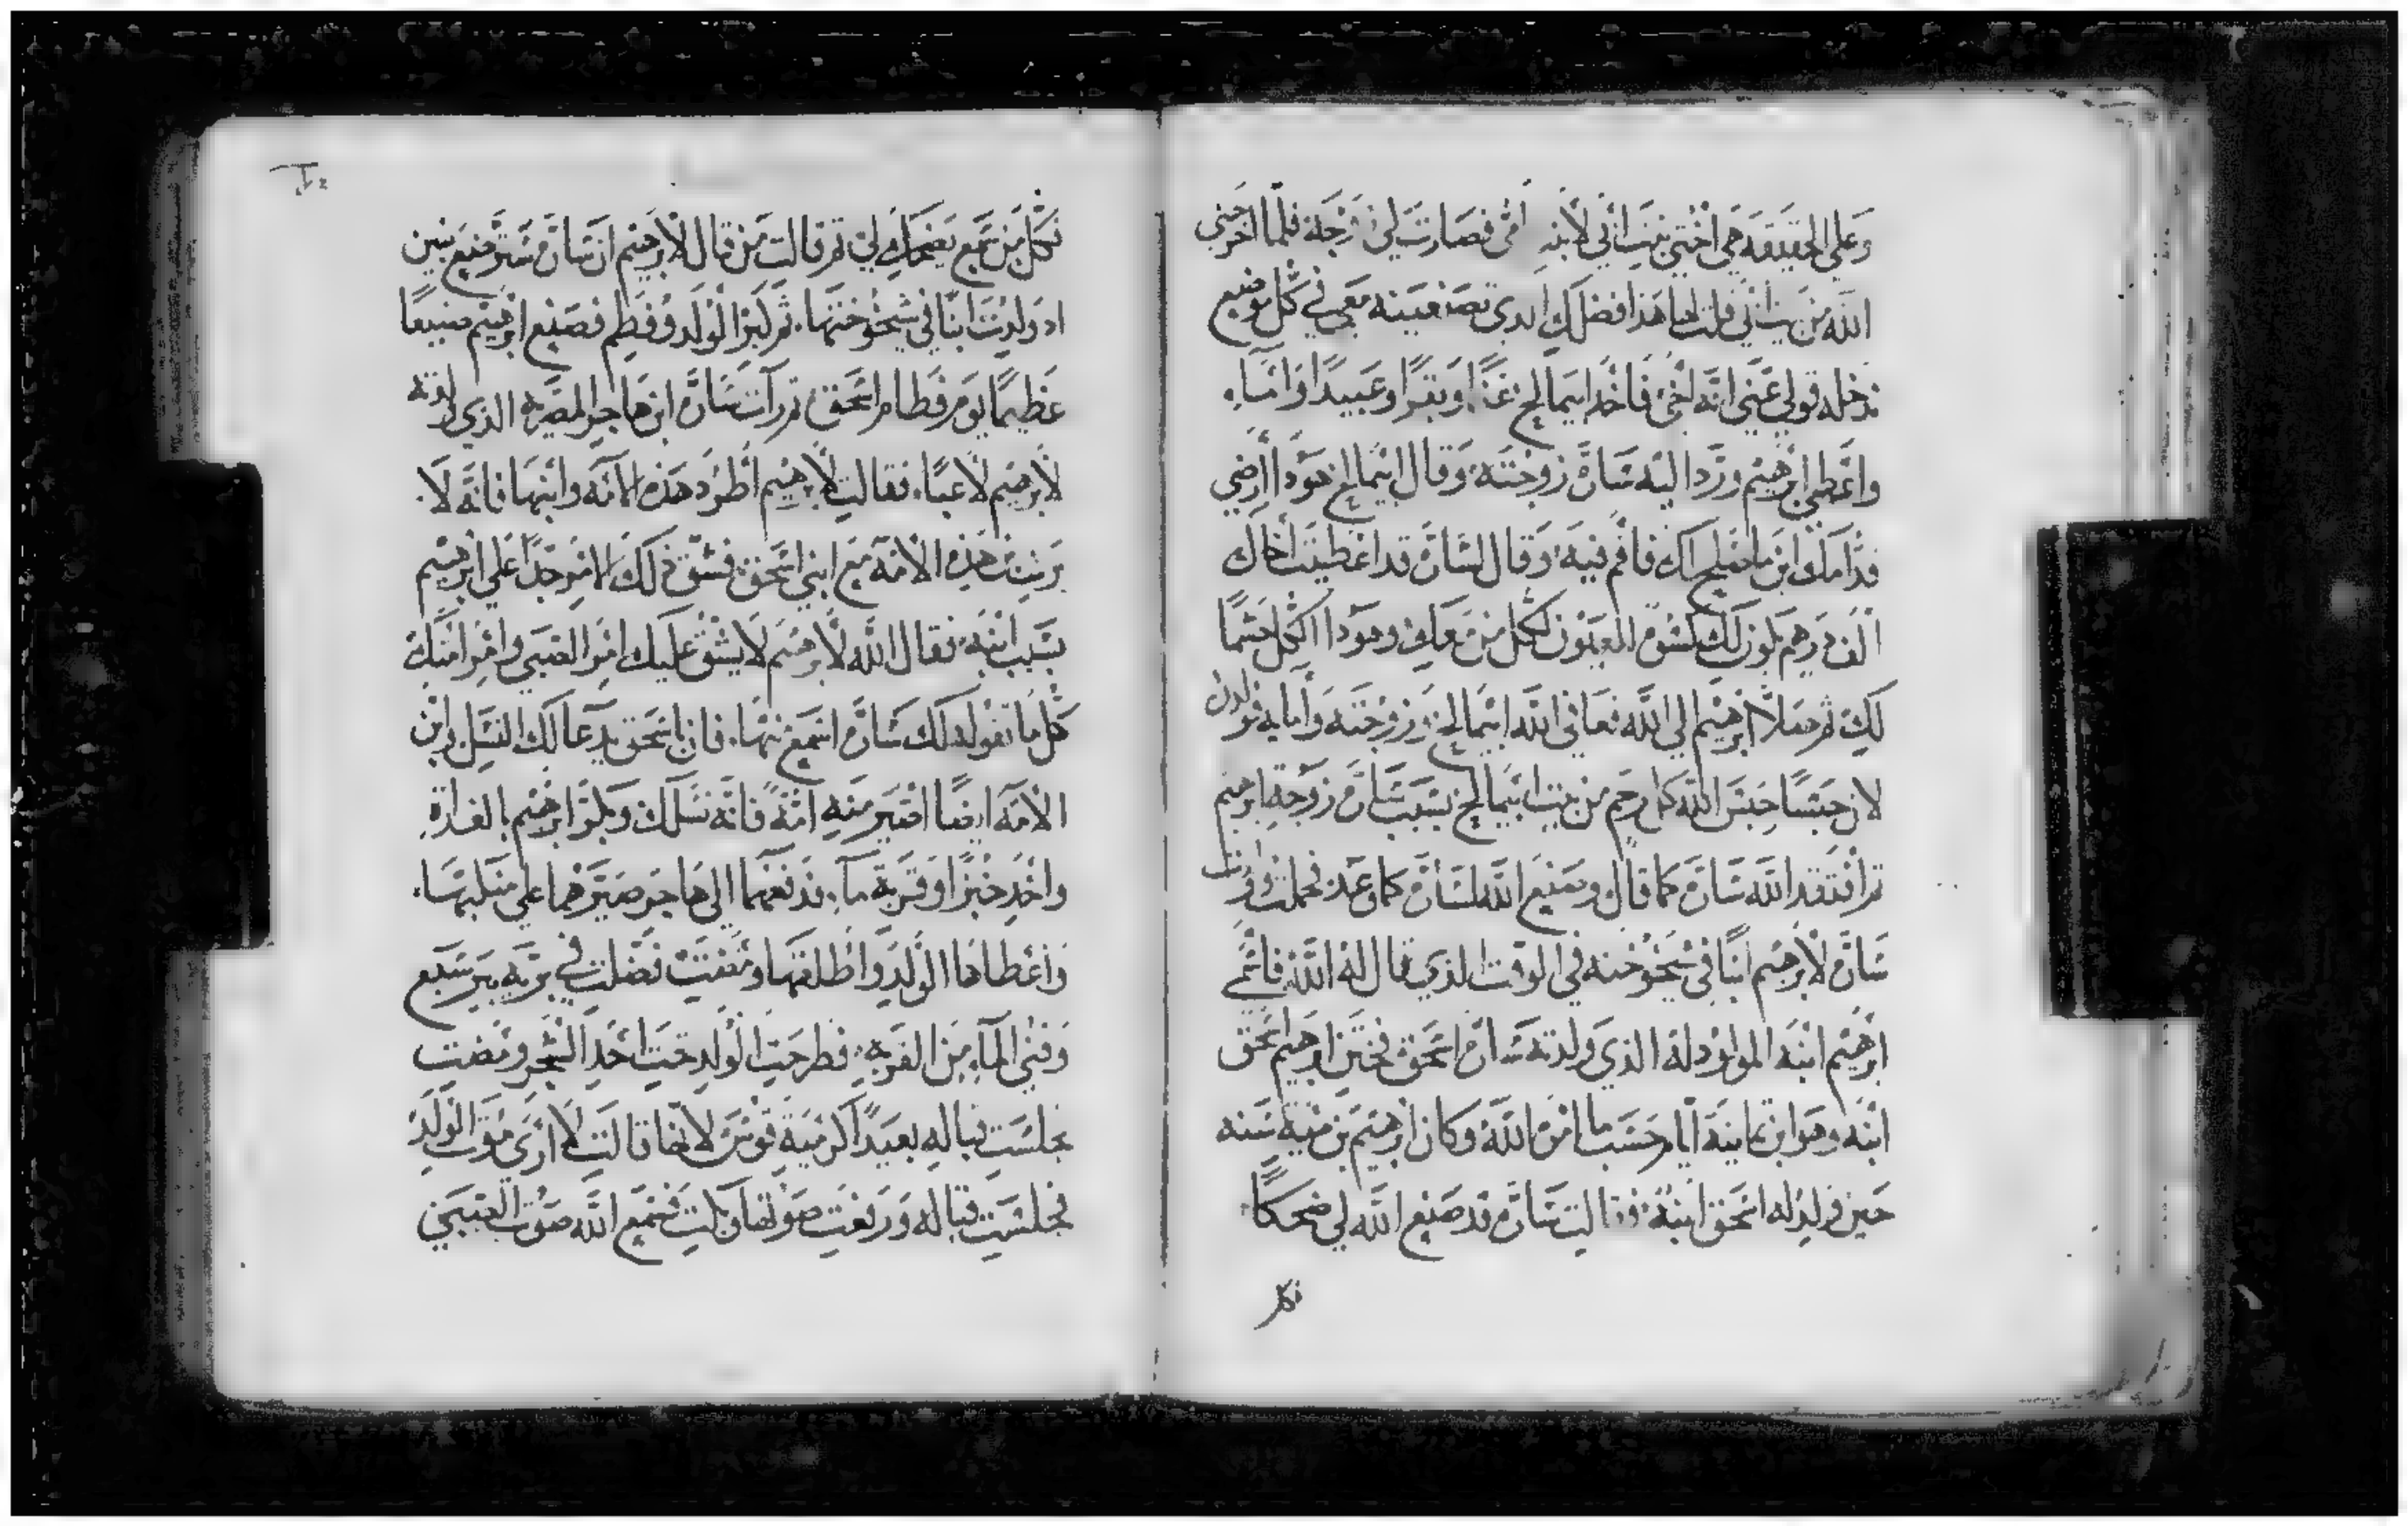 وعلى الحقيقه هي اختي بنت ابي لا ابنه امي فصارت لي زوجة فلما اخرجني
الله من بيت ابي قلت لها هذا فضلك الدي تصنعينه معي في كل موضع
ندخله قولي عني انه اخي فاخد ابيمالخ غنما وبقرا وعبيدا واماء
واعطي ابرهيم ورد اليه سارة زوجته وقال ابيمالخ هودا ارضي
قدامك اين ما صلح لك فاقم فيه وقال لسارة قد اعطيت اخاك
الف درهم يكون لك العيون لكل من معك وهودا الكل حشما
لك ثم صلا ابرهيم الي الله فعافي الله ابيمالخ وزوجته واماه فولدن
لان حبسا حبس الله كل رحم من بيت ابيمالخ بسبب سارة زوجة ابرهيم
ثم افتقد الله سارة كما قال وصنع الله لسارة كما وعد فحملت وولدت
سارة لابرهيم ابنا في شيخوخته في الوقت الذي قال له الله فاسمي
ابرهيم ابنه المولود له الذي ولدته سارة اسحق فختن ابرهيم اسحق
ابنه وهو ابن تمانية ايام حسب ما امره الله وكان ابرهيم بن مية سنه
حين ولد له اسحق ابنه فقالت سارة قد صنع الله لي ضحكا
فكل
فكل من سمع يضحك لي ثم قالت من قال لابرهيم ان سارة سترضع بنين
اد ولدت ابنا في شيخوختها ثم كبر الولد وفطم فصنع ابرهيم صنيعا
عظيما يوم فطام اسحق ثم رات سارة ابن هاجر المصرية الذي ولدته
لابرهيم لاعبا فقالت لابرهيم اطرد هذه الامه وابنها فانه لا
يرث بن هذه الامة مع ابني اسحق فشق ذلك الامر جدا علي ابرهيم
بسبب ابنه فقال الله لابرهيم لا يشق عليك امر الصبي وامر امتك
كل ما تقوله لك سارة اسمع منها فان باسحق يدعا لك النسل وابن
الامة ايضا اصير منه امة فانه نسلك وبكر ابرهيم بالغداة
واخد خبزا وقربة ماء فدفعهما الي هاجر صيرهما علي منكبها
واعطاها الولد واطلقها ومضت فضلت في برية بير سبع
وفني الماء من القربه فطرحت الولد تحت احد الشجر ومضت
فجلست قباله بعيدا كرمية قوس لانها قالت لا اري موت الولد
فجلست قباله ورفعت صوتها وبكت فسمع الله صوت الصبي